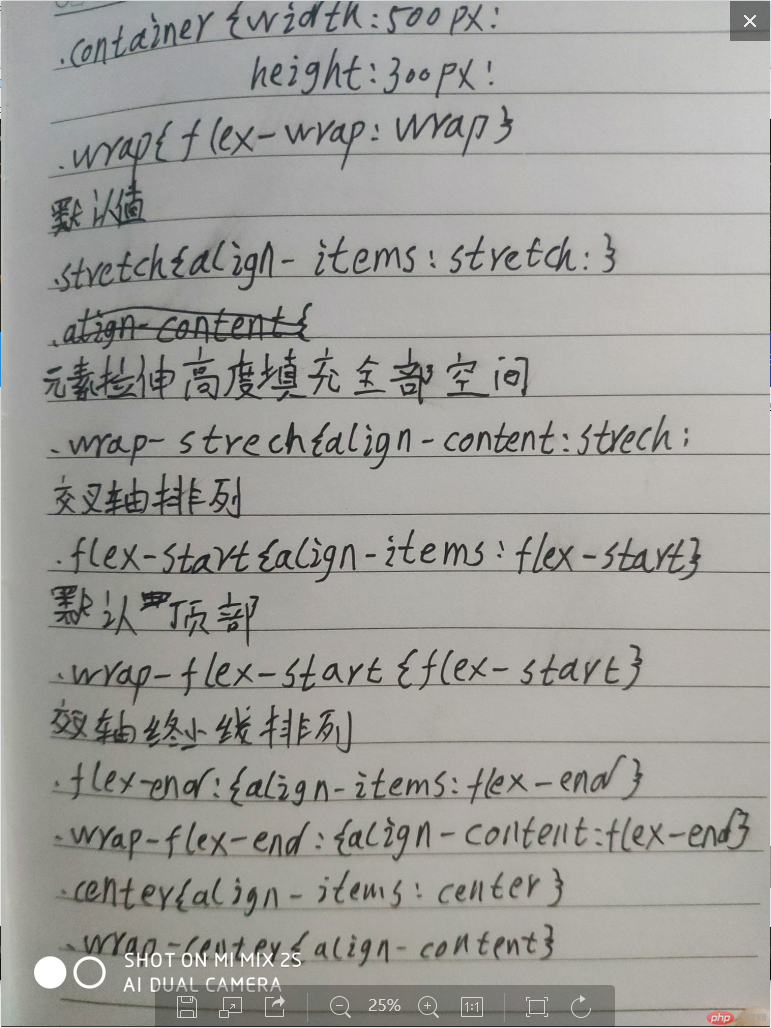 .container {width:500px:
height:300px:
.wrap{flex-wrap:wrap}
默认值
.stretch{align-items:stretch:}
.align-content{
元素拉伸高度填充全部空间
.wrap-strech{align-content:strech;
交叉轴排列
.flex-start{align-items:flex-start}
默认顶部
.wrap-flex-start{flex-start}
交叉轴终止线排列
.flex-end:{align-items:flex-end}
.wrap-flex-end:{align-content:flex-end}
.center{align-items:center}
.wrap-center{align-content}
SHOT ON MI MIX 2S
AI DUAL CAMERA
25%
1:1
php